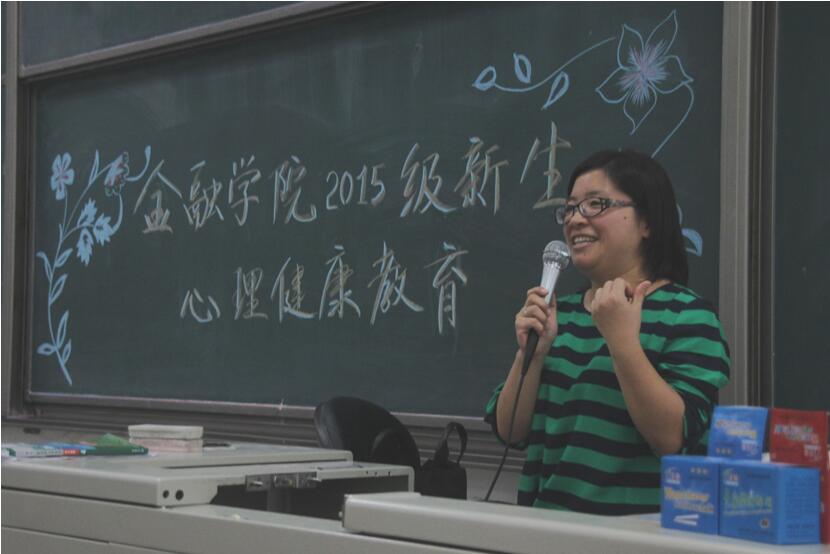 金融学院2015级新生
心理健康教育